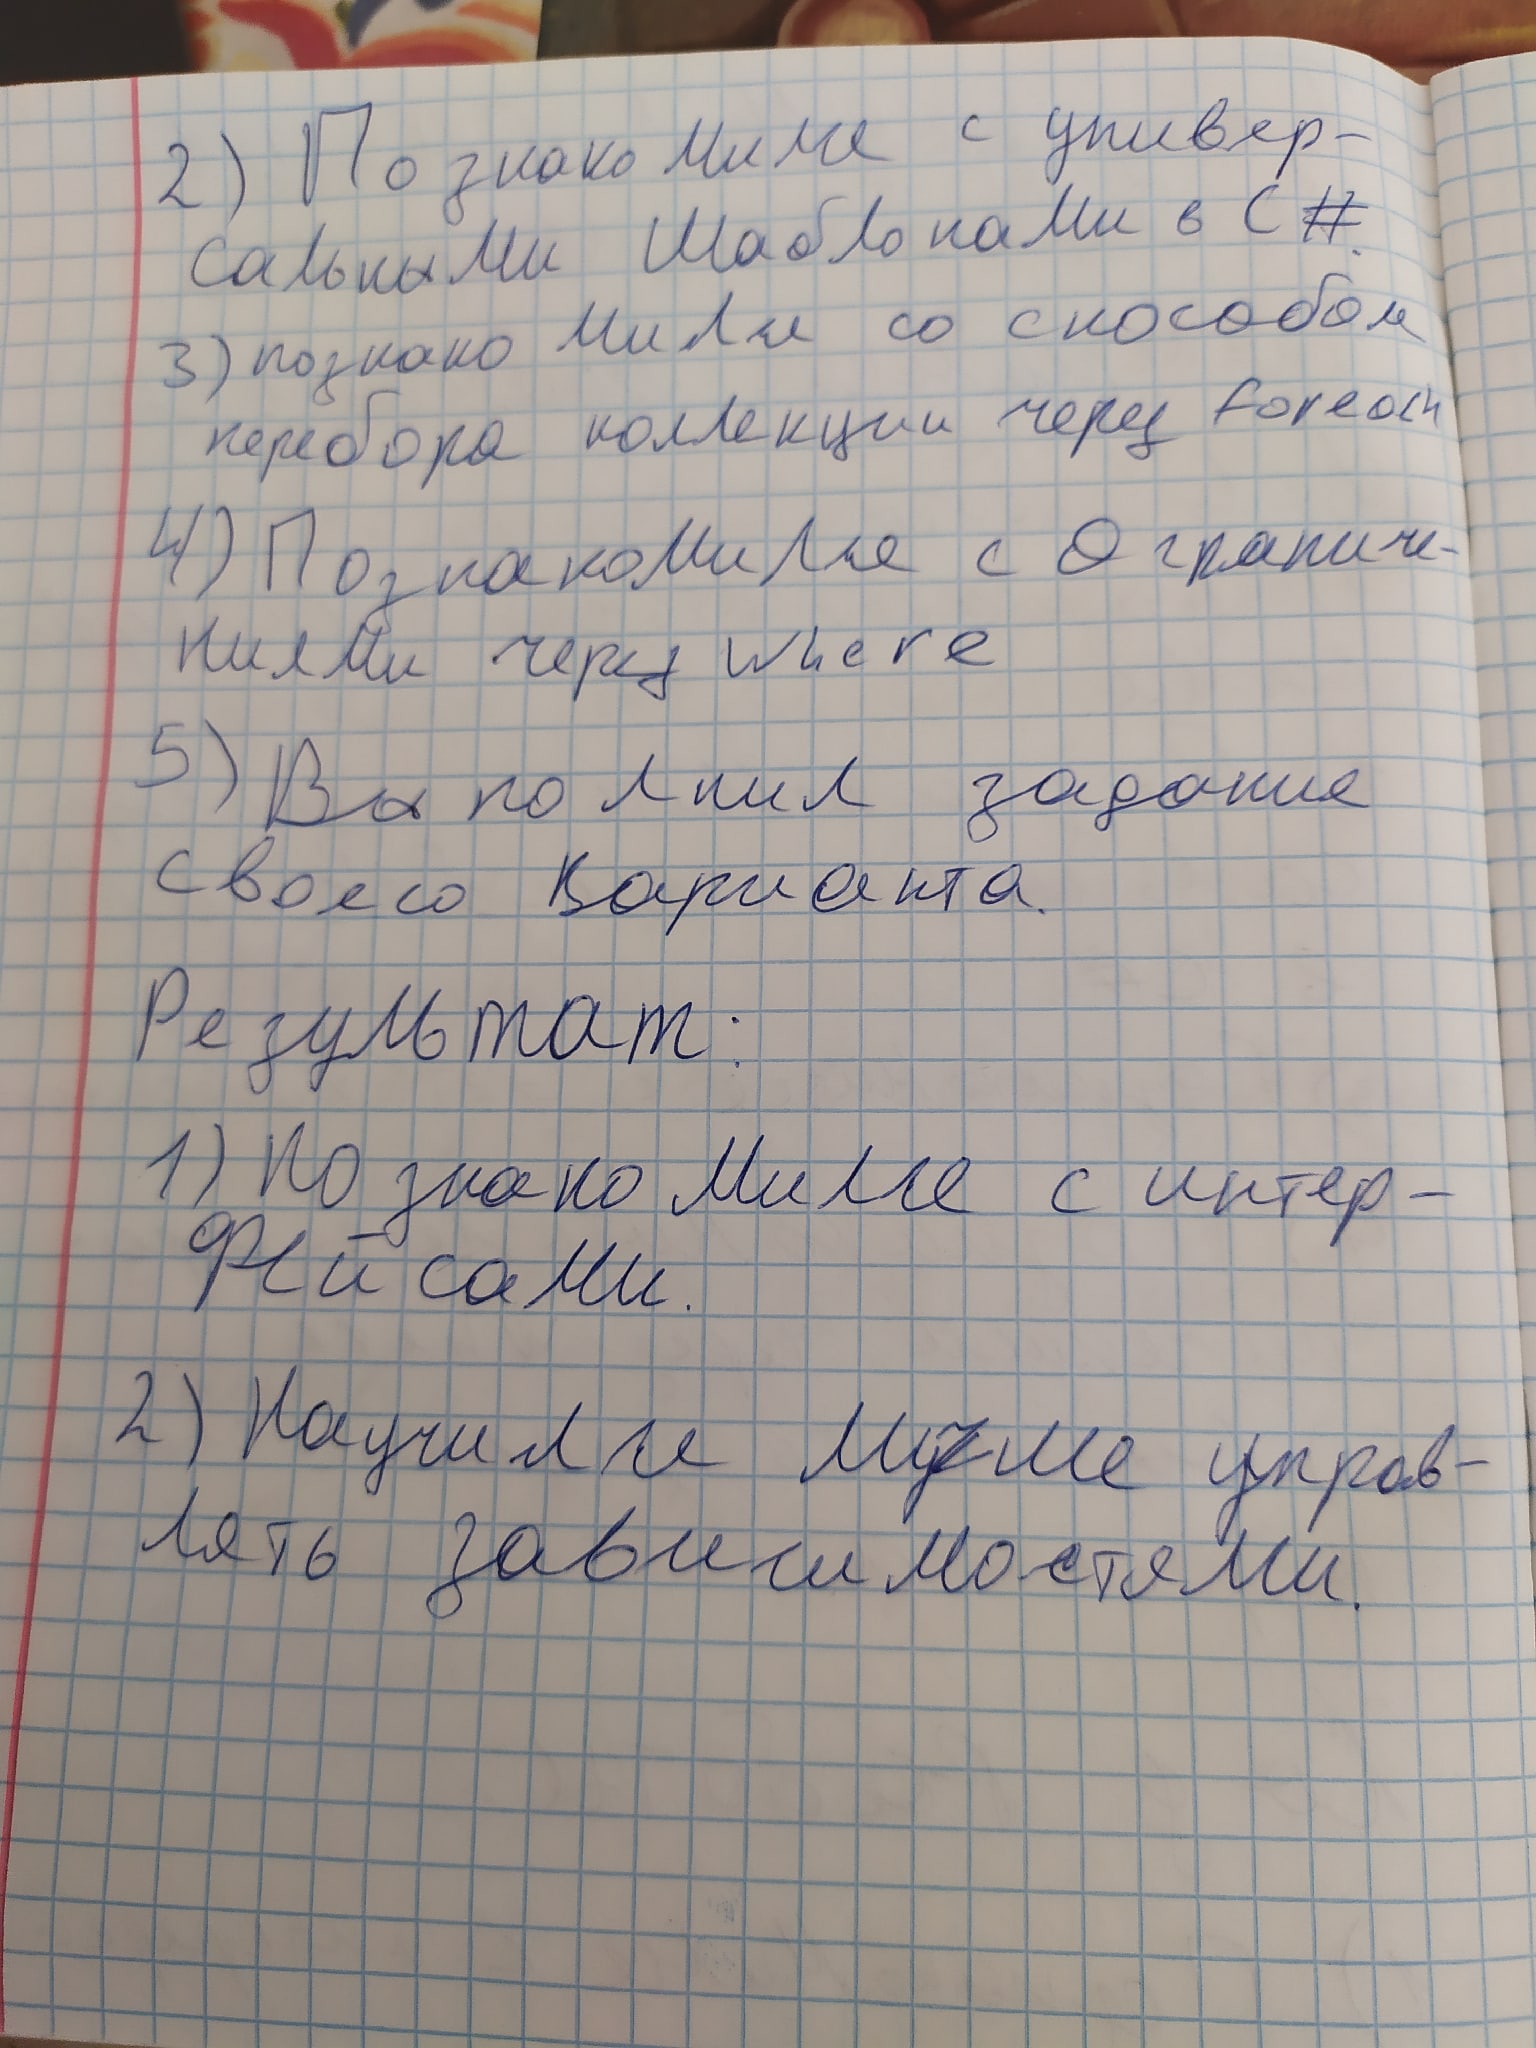 2) Познакомился с универ-
сальными шаблонами в C#.
3) познакомился со способом
перебора коллекции через foreach
4) Познакомился с Ограниче-
ниями через where
5) Выполнил задание
своего варианта.
Результат:
1) Познакомился с интер-
фейсами.
2) Научился лучше управ-
лять зависимостями.